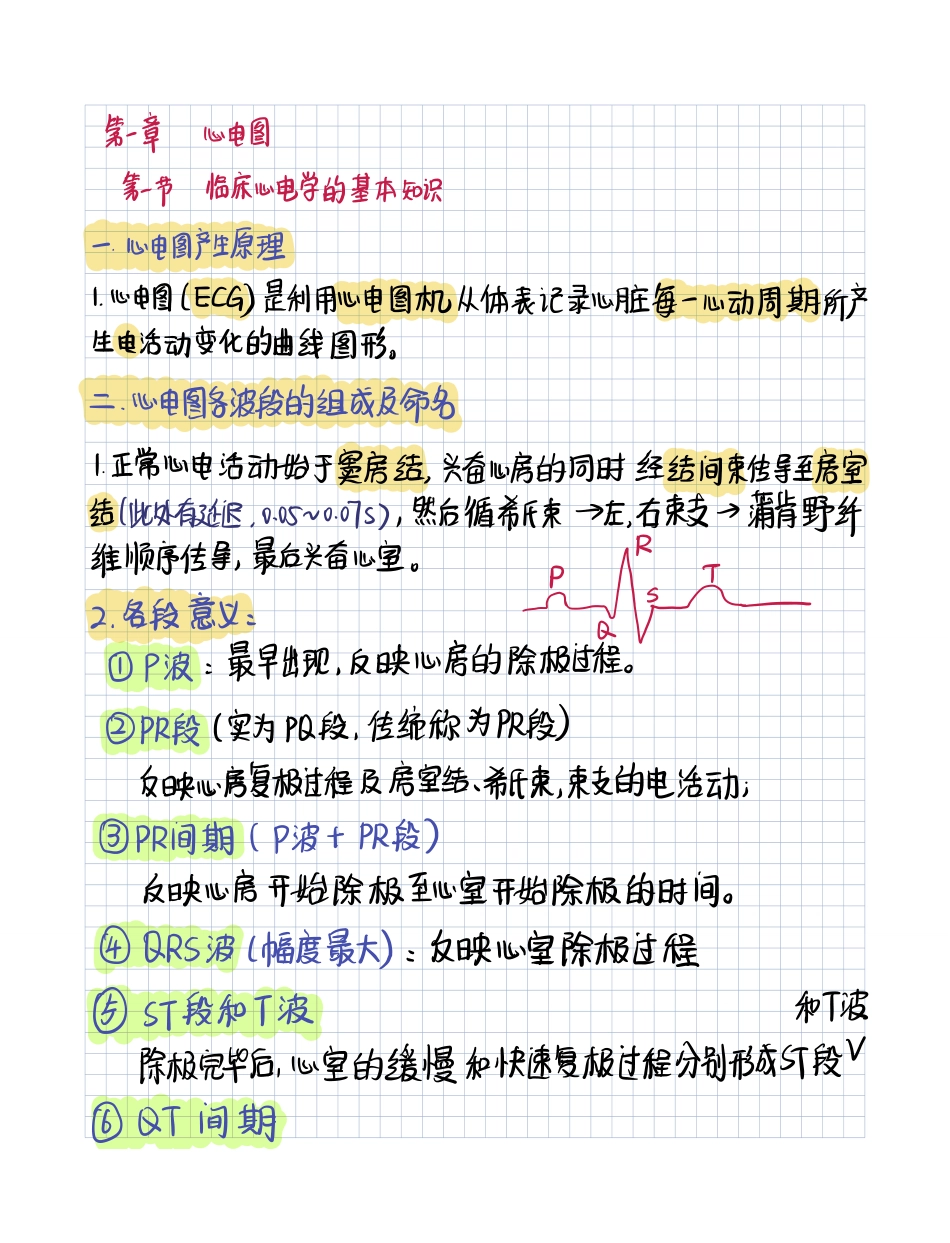 第一章 心电图
第一节 临床心电学的基本知识
一. 心电图产生原理
1.心电图(ECG)是利用心电图机从体表记录心脏每一心动周期所产
生电活动变化的曲线图形。
二.心电图各波段的组成及命名
1.正常心电活动始于窦房结,兴奋心房的同时 经结间束传导至房室
结(此处有延迟,0.05~0.07s),然后循希氏束→左,右束支→蒲肯野纤
维顺序传导,最后兴奋心室。
P Q R S T
2.各段意义:
① P波:最早出现,反映心房的除极过程。
②PR段(实为PQ段,传统称为PR段)
反映心房复极过程及房室结、希氏束,束支的电活动;
③PR间期(P波+PR段)
反映心房开始除极至心室开始除极的时间。
④ QRS波(幅度最大):反映心室除极过程
⑤ ST段和T波
和T波
除极完毕后,心室的缓慢和快速复极过程分别形成ST段
⑥ QT间期